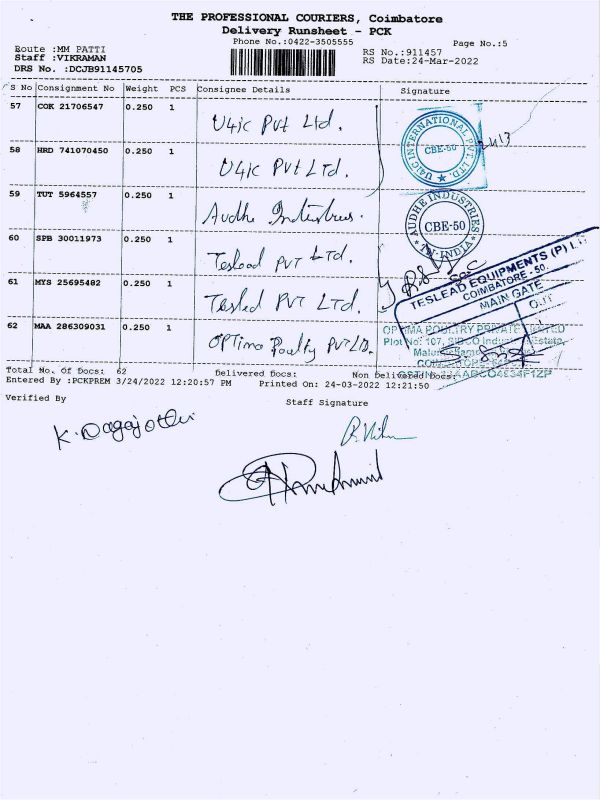 THE PROFESSIONAL COURIERS, Coimbatore
Delivery Runsheet - PCK
Phone No.:0422-3505555
Page No.:5
Route :MM PATTI
Staff :VIKRAMAN
DRS No. :DCJB91145705
RS No.:911457
RS Date:24-Mar-2022
S No Consignment No Weight PCS Consignee Details Signature
57 COK 21706547 0.250 1 U4ic Pvt Ltd.
U4IC INTERNATIONAL PVT. LTD.
CBE-50
58 HRD 741070450 0.250 1 U4ic Pvt Ltd.
59 TUT 5964557 0.250 1 Audhe Industries.
AUDHE INDUSTRIES
CBE-50
INDIA
60 SPB 30011973 0.250 1 Teslead PVT LTd.
61 MYS 25695482 0.250 1 Tesled PVT LTd.
TESLEAD EQUIPMENTS (P) LTD
COIMBATORE - 50.
MAIN GATE
OUT
62 MAA 286309031 0.250 1 OPTima Poulty PVT LTD.
OPTIMA POULTRY PRIVATE LIMITED
Plot No: 107, SIDCO Industrial Estate,
Total No. Of Docs: 62 Delivered Docs: Non Delivered Docs:
Entered By :PCKPREM 3/24/2022 12:20:57 PM Printed On: 24-03-2022 12:21:50
Verified By
Staff Signature